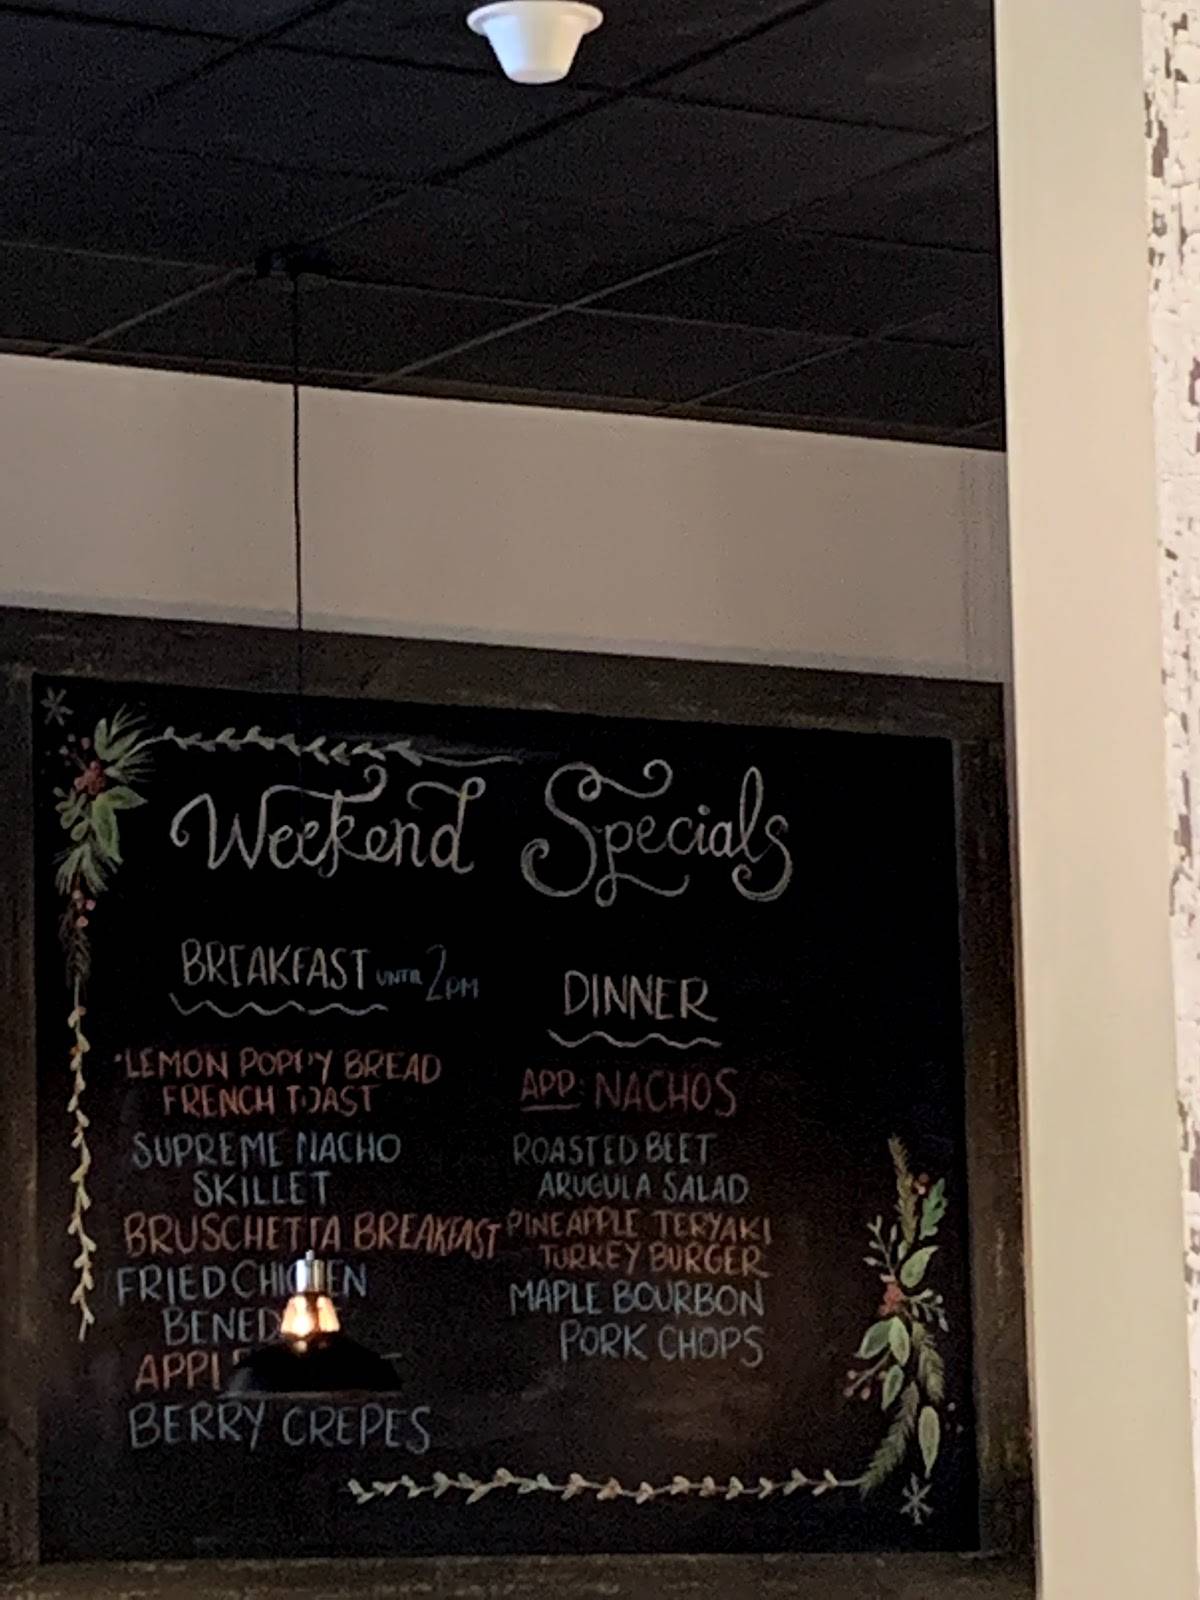 Weekend Specials
BREAKFAST UNTIL 2PM
LEMON POPPY BREAD
FRENCH TOAST
SUPREME NACHO
SKILLET
BRUSCHETTA BREAKFAST
FRIED CHICKEN
BENED
APPL
BERRY CREPES
DINNER
APP: NACHOS
ROASTED BEET
ARUGULA SALAD
PINEAPPLE TERYAKI
TURKEY BURGER
MAPLE BOURBON
PORK CHOPS